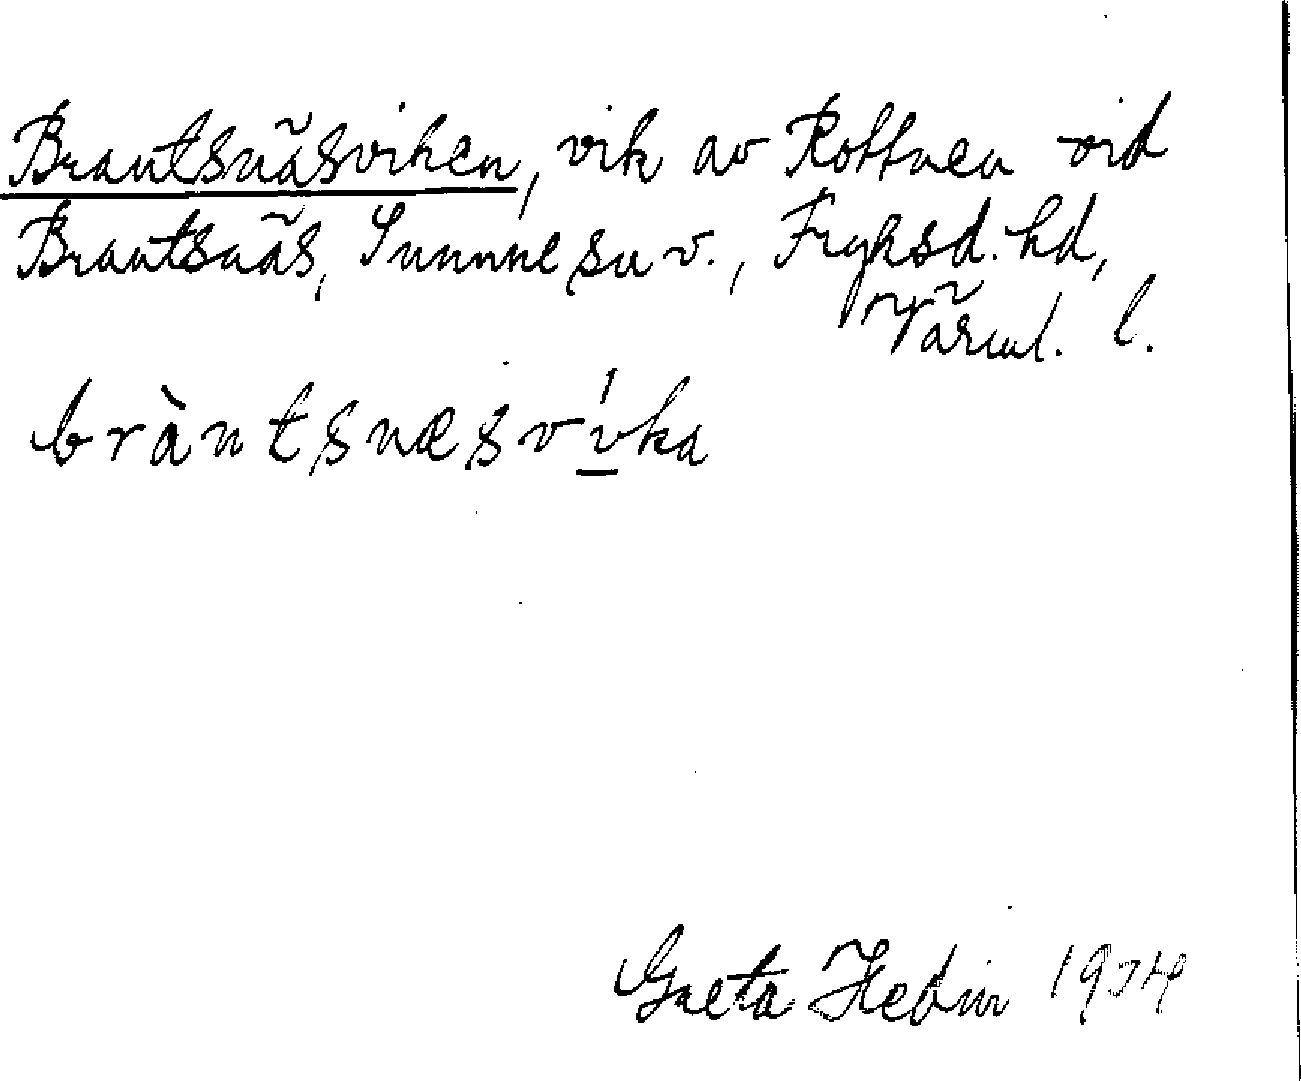 Brantsnäsviken, vik av Rottnen vid
Brantsnäs, Sunne sn v., Fryksd. hd,
Värml. l.
bràntsnæsvíka
Greta Hedin 1934